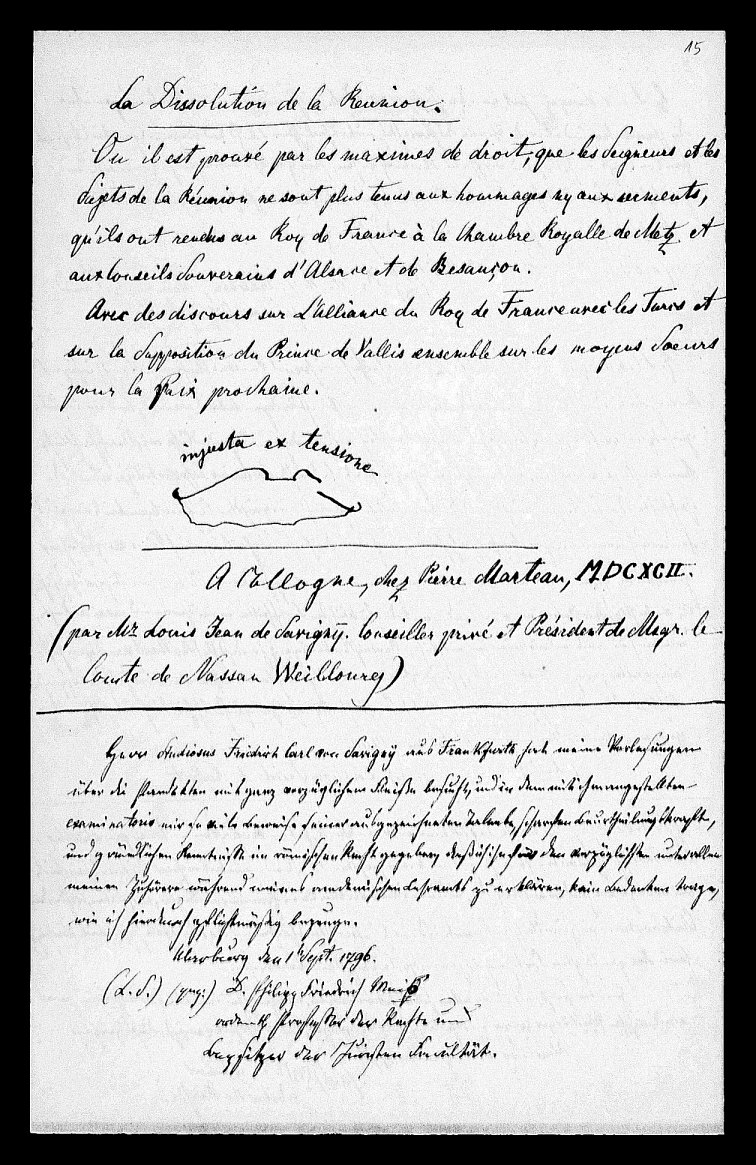 15
La Dissolution de la Reunion.
Ou il est prouvé par les maximes de droit, que les Seigneurs et les
Sujets de la Réunion ne sont plus tenus aux hommages ny aux serments,
qu'ils ont rendus au Roy de France à la Chambre Royalle de Metz et
aux Conseils Souverains d'Alsace et de Besançon.
Avec des discours sur L'Alliance du Roy de France avec les Turcs et
sur la Supposition du Prince de Vallis ensemble sur les moyens Soeurs
pour la Paix prochaine.
injusta ex tensione
A Collogne, chez Pierre Marteau, MDCXCII.
(par Mr Louis Jean de Savigny. Conseiller privé et Président de Msgr. le
Comte de Nassau Weilbourg)
Herr Studiosus Friedrich Carl von Savigny aus Frankfurth hat meine Vorlesungen
über die Pandekten mit ganz vorzüglichem Fleiße besucht, und in dem mit ihm angestellten
examinatorio mir so viele Beweise seiner ausgezeichneten Talente, scharfen Beurtheilungskraft,
und gründlichen Kenntniße im römischen Recht gegeben, daß ich ihn für den vorzüglichsten unter allen
meinen Zuhörern während meines academischen Lehramts zu erklären, kein Bedenken trage,
wie ich hierdurch pflichtmäßig bezeuge.
Marburg den 1 Sept. 1796.
(L. S.) (gez:) D. Philipp Friedrich Weis
ordentl. Professor der Rechte und
Beysitzer der Juristen Facultät.